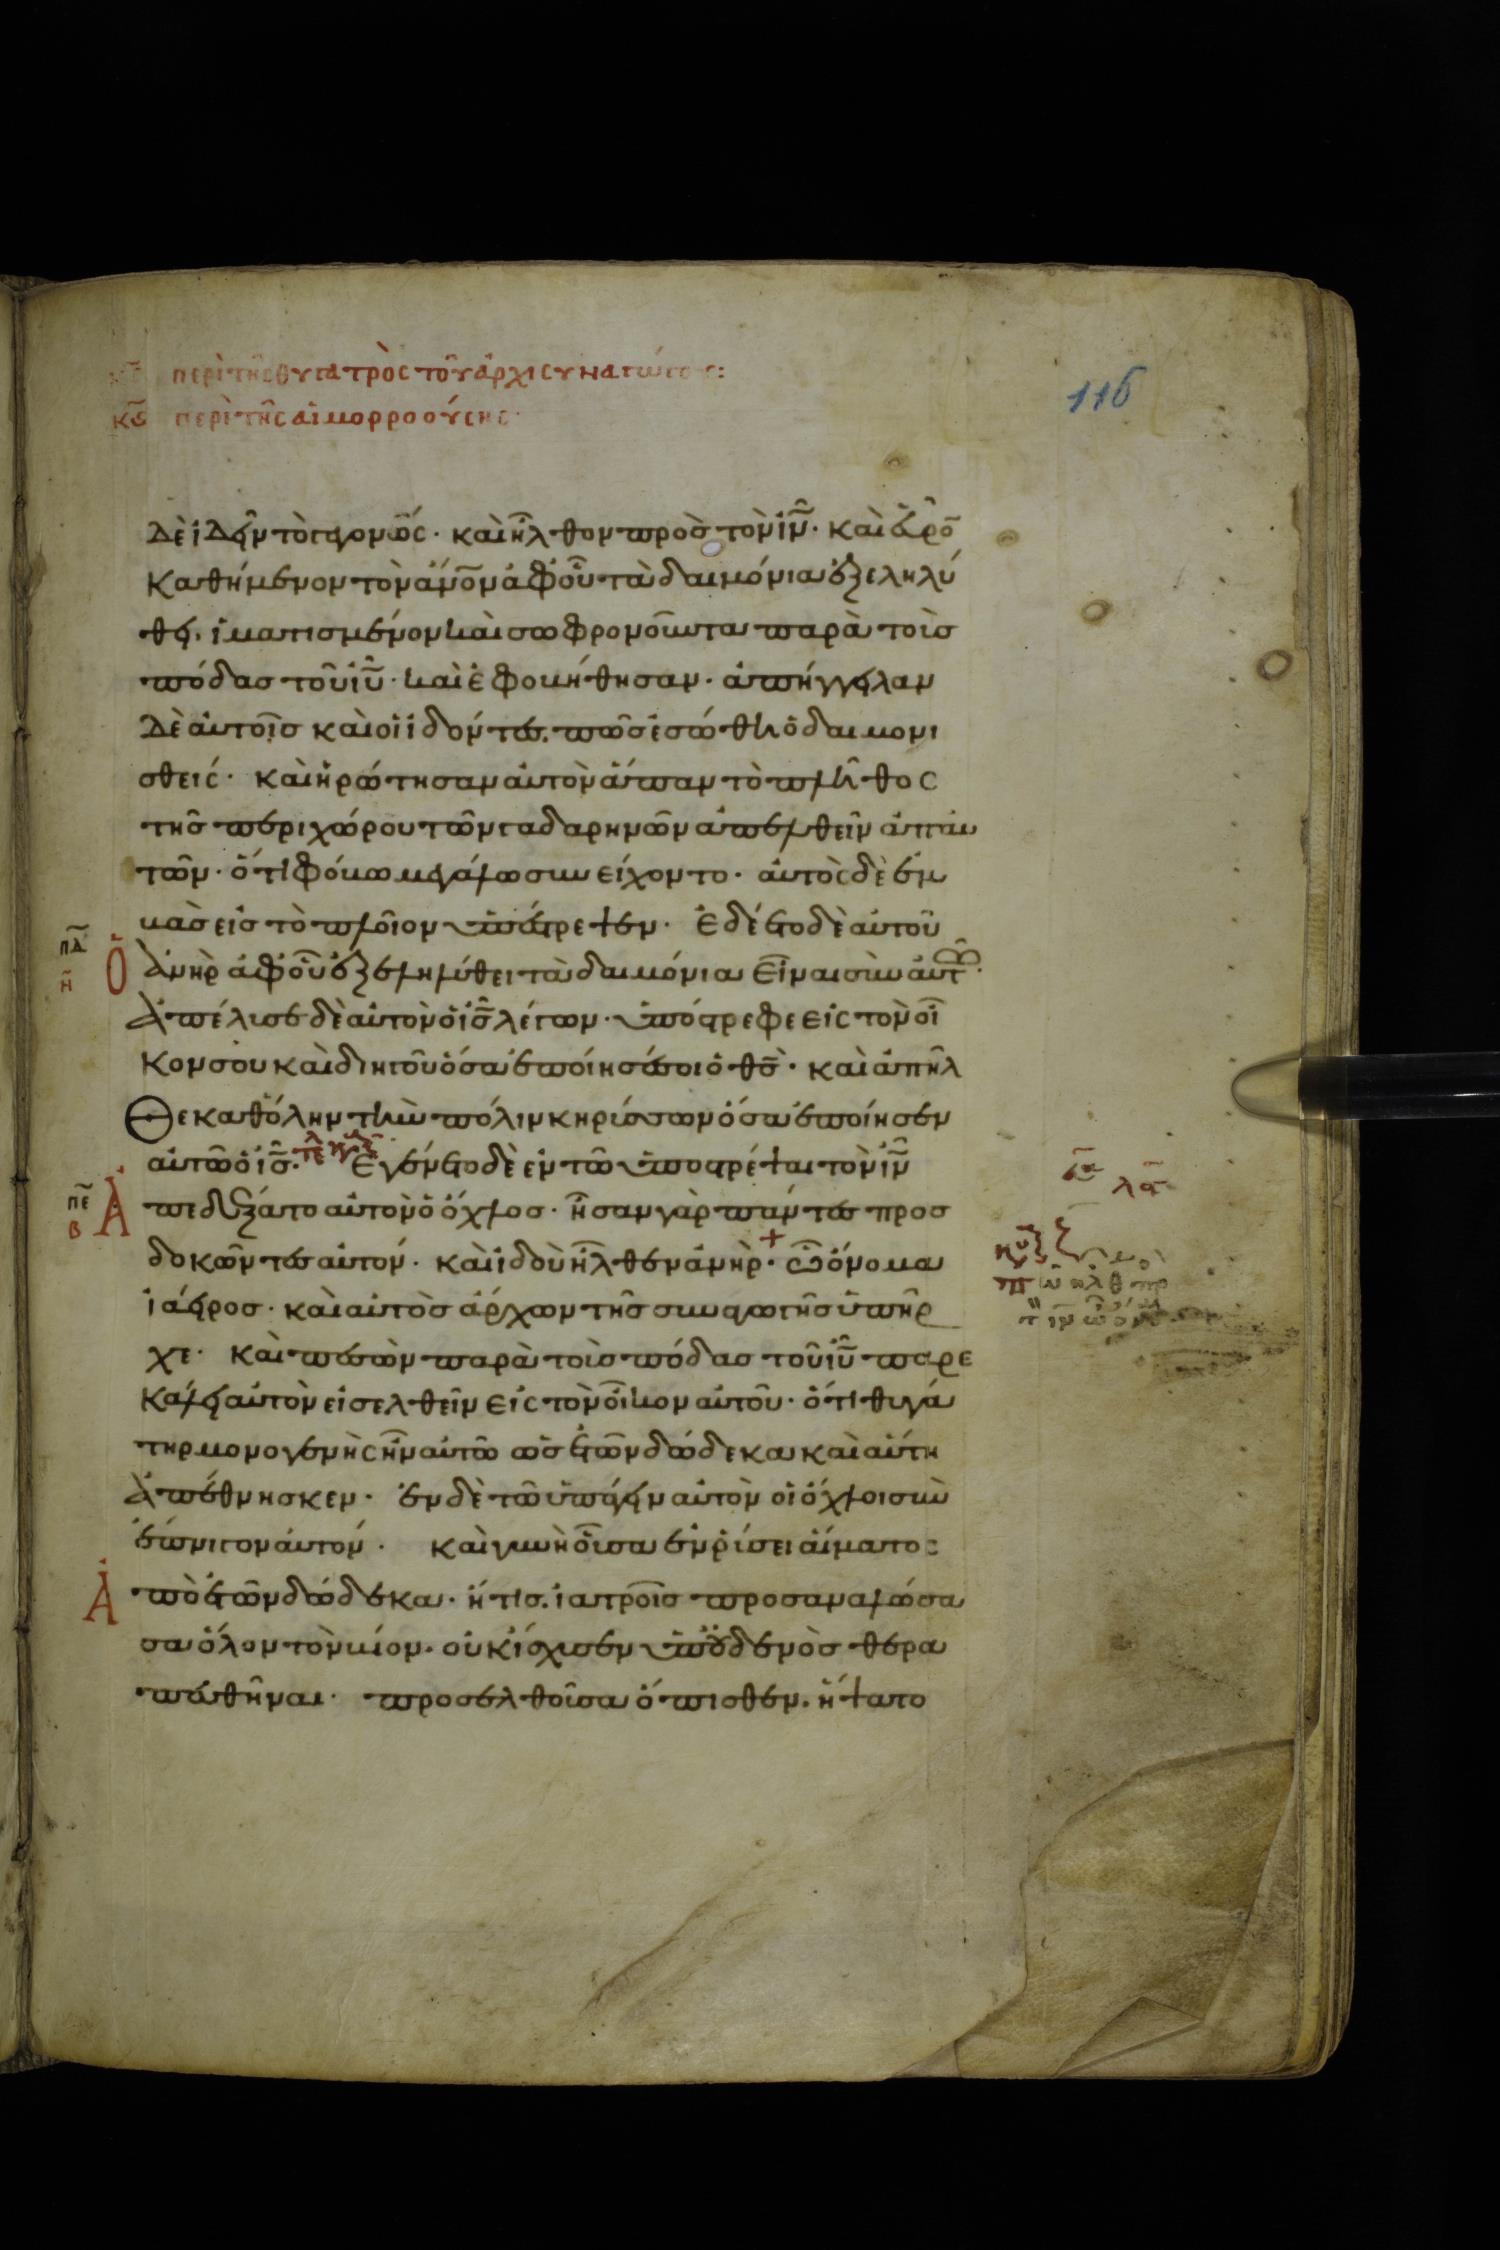 περὶ τῆς θυγατρὸς τοῦ ἀρχισυναγώγου:
κς̄ περὶ τῆς αἱμορροούσης·
116
δὲ ἰδεῖν τὸ γεγονὸς· καὶ ἦλθον προς τὸν ἰν̄· καὶ εὗρον
καθήμενον τὸν ἄνον̄ ἀφ' οὗ τὰ δαιμόνια ἐξεληλύ
θει. ἱματισμένον καὶ σωφρονοῦντα παρὰ τοὺς
πόδας τοῦ ἰῡ· καὶ ἐφοβήθησαν· ἀπήγγειλαν
δὲ αὐτοῖς καὶ οἱ ἰδόντες. πῶς ἐσώθη ὁ δαιμονι
σθείς· καὶ ἠρώτησαν αὐτὸν ἅπαν τὸ πλῆθος
τῆς περιχώρου τῶν γαδαρηνῶν ἀπελθεῖν ἀπ' αὐ
τῶν· ὅτι φόβω μεγάλω συνείχοντο· αὐτὸς δὲ ἐμ
βὰς εἰς τὸ πλοῖον ὑπέστρεψεν· ἐδέετο δὲ αὐτοῦ
πᾱ
η̄
Ὁ ἀνὴρ ἀφ' οὗ ἐξεληλύθει τὰ δαιμόνια εἶναι σὺν αὐτῶ·
ἀπέλυσε δὲ αὐτὸν ὁ ἰς̄ λέγων· ὑπόστρεφε εἰς τὸν οἶ
κον σου καὶ διηγοῦ ὅσα ἐποίησέ σοι ὁ θς̄· καὶ ἀπῆλ
θε καθ' ὅλην τὴν πόλιν κηρύσσων ὅσα ἐποίησεν
αὐτῶ ὁ ἰς̄. ἐγένετο δὲ ἐν τῶ ὑποστρέψαι τὸν ἰν̄
πε̄
β
Ἀπεδέξατο αὐτὸν ὁ ὄχλος· ἦσαν γὰρ πάντες προσ
δοκῶντες αὐτόν· καὶ ἰδοὺ ἦλθεν ἀνὴρ· + ὧ ὄνομα
ἰάειρος· καὶ αὐτὸς ἄρχων τῆς συναγωγῆς ὑπῆρ
χε· καὶ πεσὼν παρὰ τοὺς πόδας τοῦ ἰῡ παρε
κάλει αὐτὸν εἰσελθεῖν εἰς τὸν οἶκον αὐτοῦ· ὅτι θυγά
τηρ μονογενὴς ἦν αὐτῶ ὡς ἐτῶν δώδεκα καὶ αὕτη
ἀπέθνησκεν· ἐν δὲ τῶ ὑπάγειν αὐτὸν οἱ ὄχλοι συν
έπνιγον αὐτόν· καὶ γυνὴ οὖσα ἐν ῥύσει αἵματος
Ἀπὸ ἐτῶν δώδεκα· ἥτις. ἰατροῖς προσαναλώσα
σα ὅλον τὸν βίον· οὐκ ἴσχυσεν ὑπ' οὐδενὸς θερα
πευθῆναι· προσελθοῦσα ὄπισθεν. ἥψατο